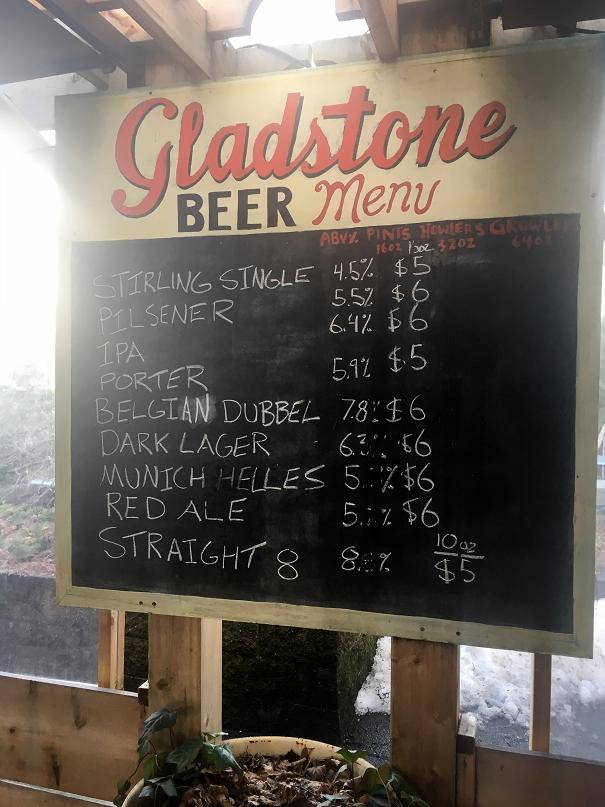 Gladstone
BEER Menu
ABV% PINTS HOWLERS GROWLERS
16oz 32OZ 64OZ
STIRLING SINGLE 4.5% $5
PILSENER 5.5% $6
IPA 6.4% $6
PORTER 5.9% $5
BELGIAN DUBBEL 7.8% $6
DARK LAGER $6
MUNICH HELLES $6
RED ALE $6
STRAIGHT 8 10oz
$5